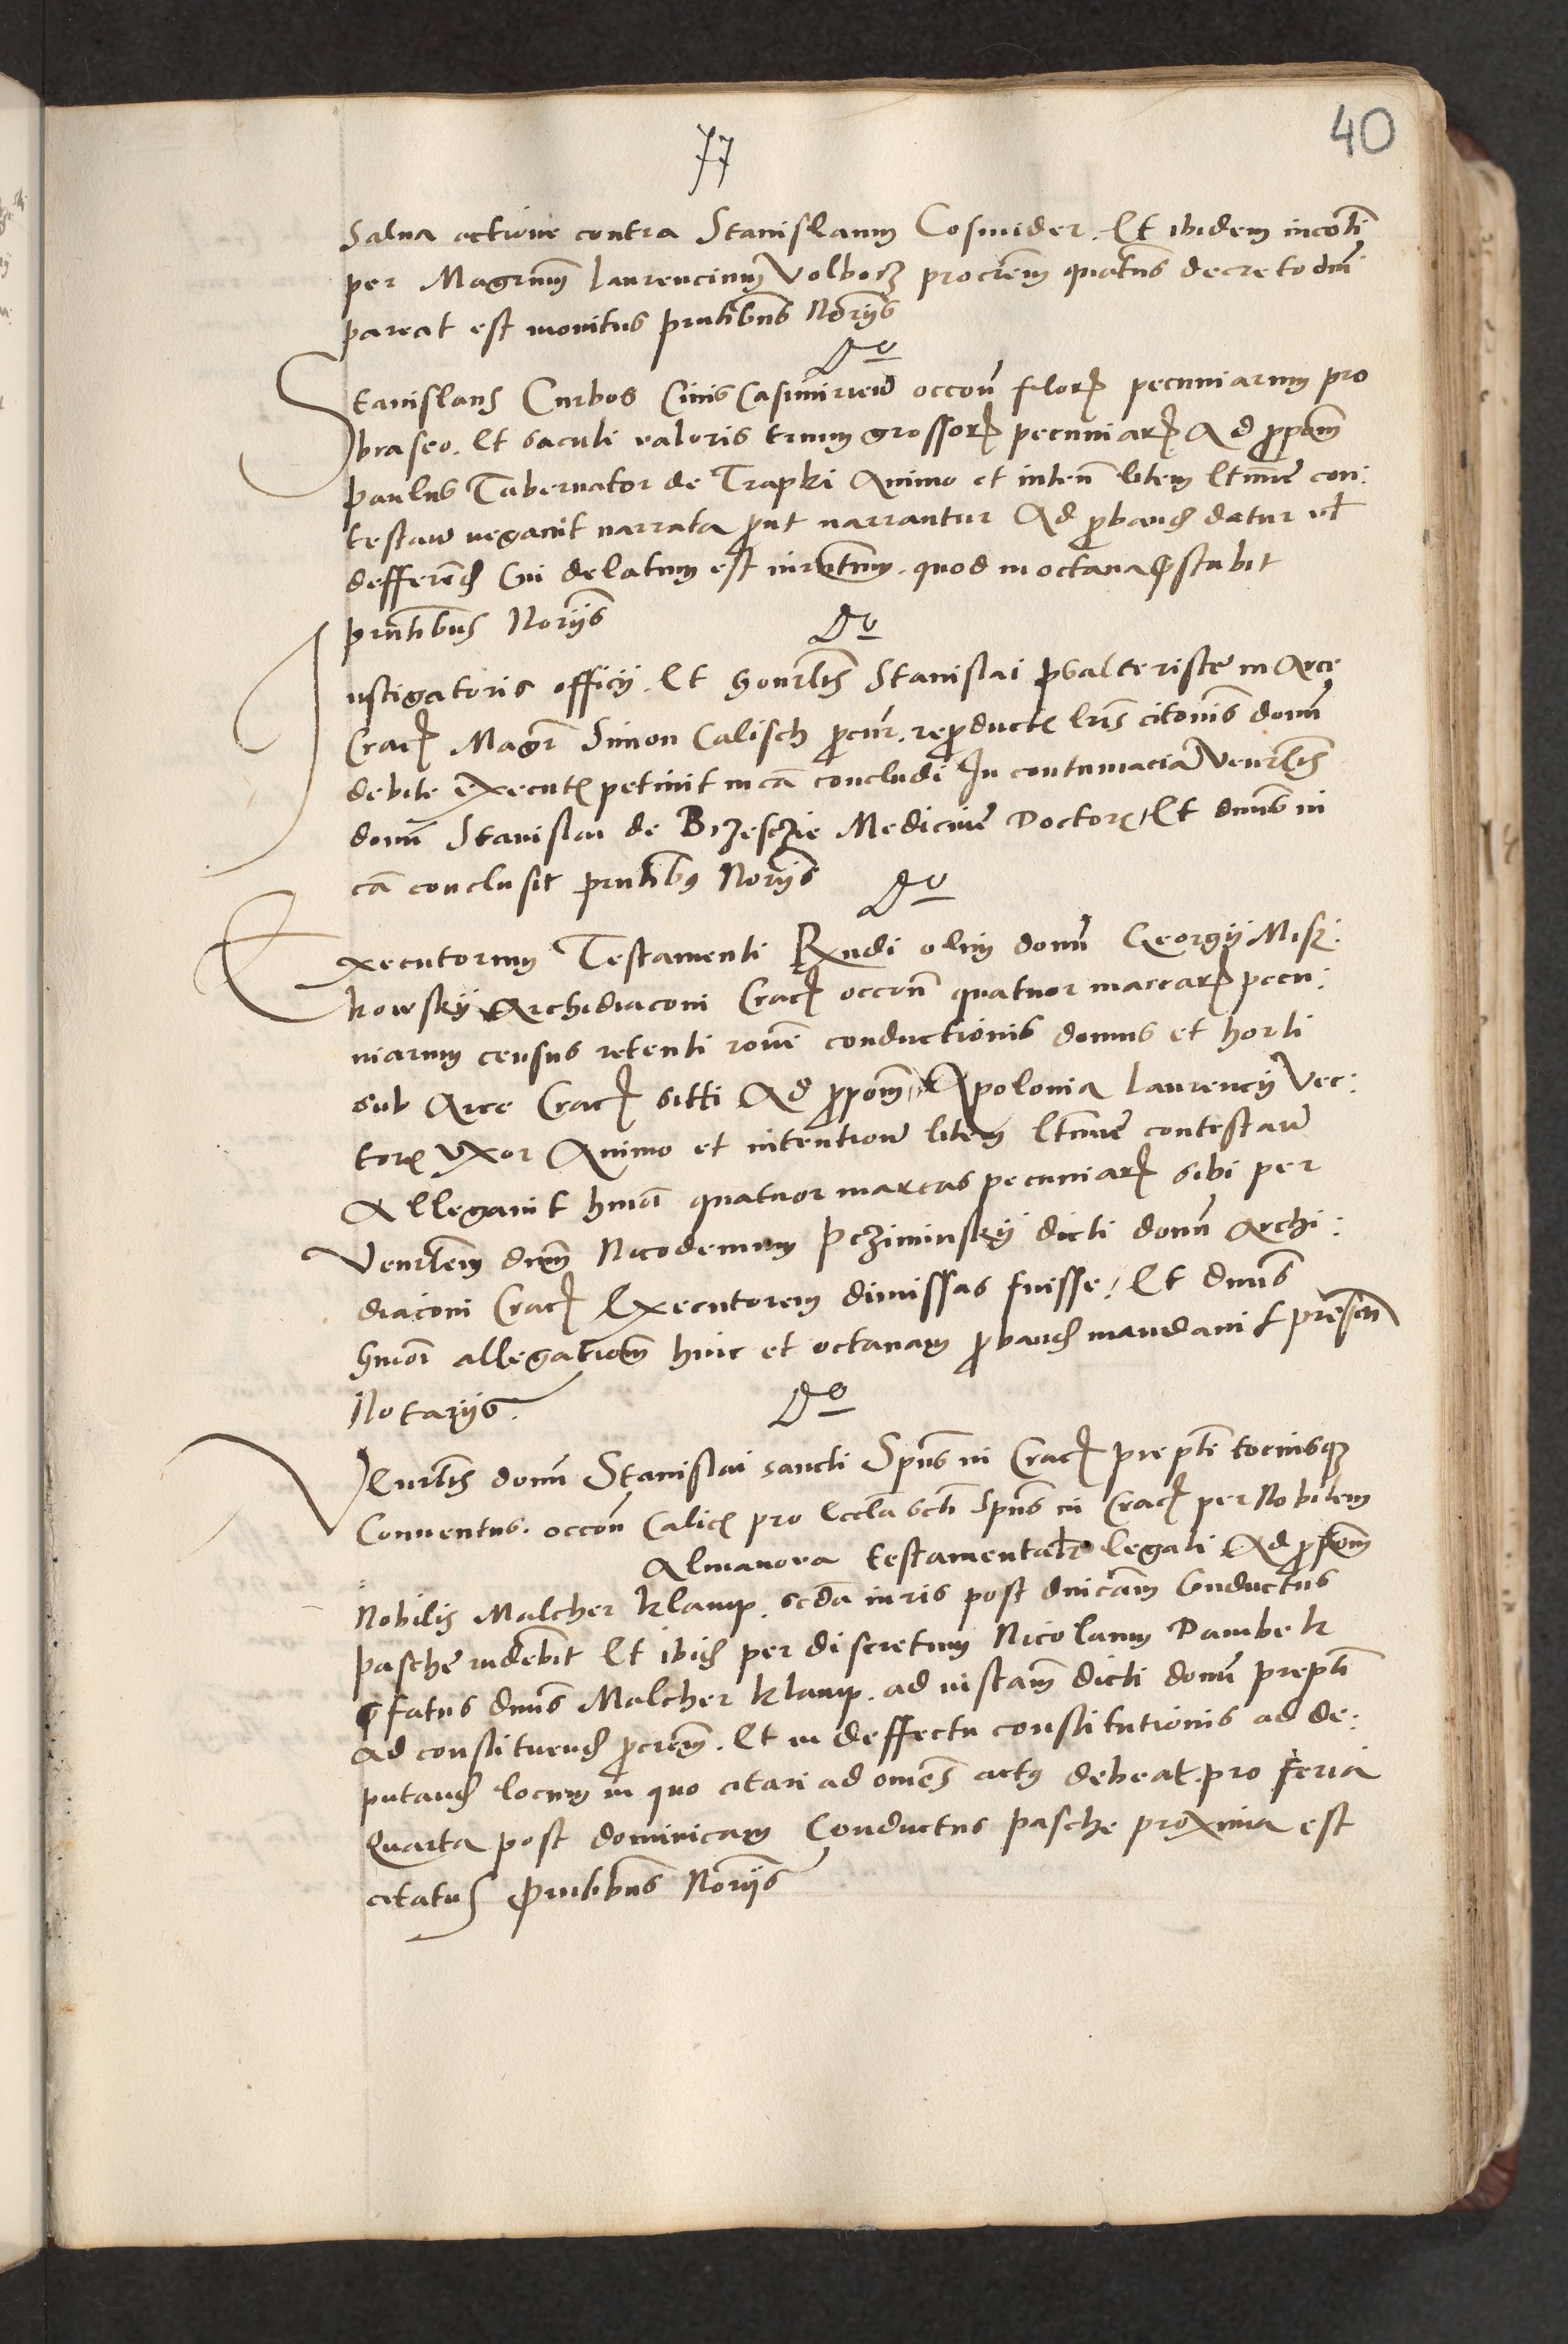 40
77
Salva actione contra Stanislaum Cosmider. Et ibidem incoti
per Magrum Laurencium Volborz procrem quatns decreto dni
pareat est monitus pntibus Noriis
Do
Stanislaus Curbos Civis Casimirien occon flor pecuniarum pro
braseo. Et saculi valoris trium grossor pecuniar Ad ppom
Paulus Tabernator de Trapki Animo et inten litem ltime con:
testan negavit narrata prout narrantur Ad proband datur vl
defferend Cui delatum est iurtum. quod in octava pstabit
pntibus Noriis
Do
Instigatoris officii. Et honrlis Stanislai psalteriste in Arce
Crac Magr Simon Calisch procur. reproductis lris citonis domi
debite executis petivit in ca concludi In contumacia Venrlis
domi Stanislai de Brzeszie Medicine Doctoris, Et dnus in
ca conclusit pntibus Noriis
Do
Executorum Testamenti Rndi olim domi Georgii Misz:
kowsky Archidiaconi Crac occon quatuor marcar pecu:
niarum census retenti rone conductionis domus et horti
sub Arce Crac sitti Ad ppom Apolonia Laurencii Vec:
toris uxor Animo et intentione litem ltime contestan
Allegavit hmoi quatuor marcas pecuniar sibi per
Venrlem dnm Nicodemum Pcziminsky dicti domi Archi:
diaconi Crac Executorem dimissas fuisse, Et dnus
hmoi allegationem hinc et octavam proband mandavit presen
Notariis.
Do
Venrlis domi Stanislai sancti Spus in Crac prepti tociusq
Conventus. occon Calicis pro Eccla scti Spus in Crac per Nobilem
Almanora testamentalr legati Ad ppom
Nobilis Malcher Klamp. scda iuris post dnicam Conductus
Pasche rndebit Et ibid per discretum Nicolaum Dambek
pfatus dnus Malcher Klamp. ad instam dicti domi prepti
ad constituend procrem. Et in deffectu constitutionis ad de:
putand locum in quo citari ad omes actus debeat. pro feria
Quarta post dominicam Conductus Pasche proxima est
citatus Pntibus Noriis